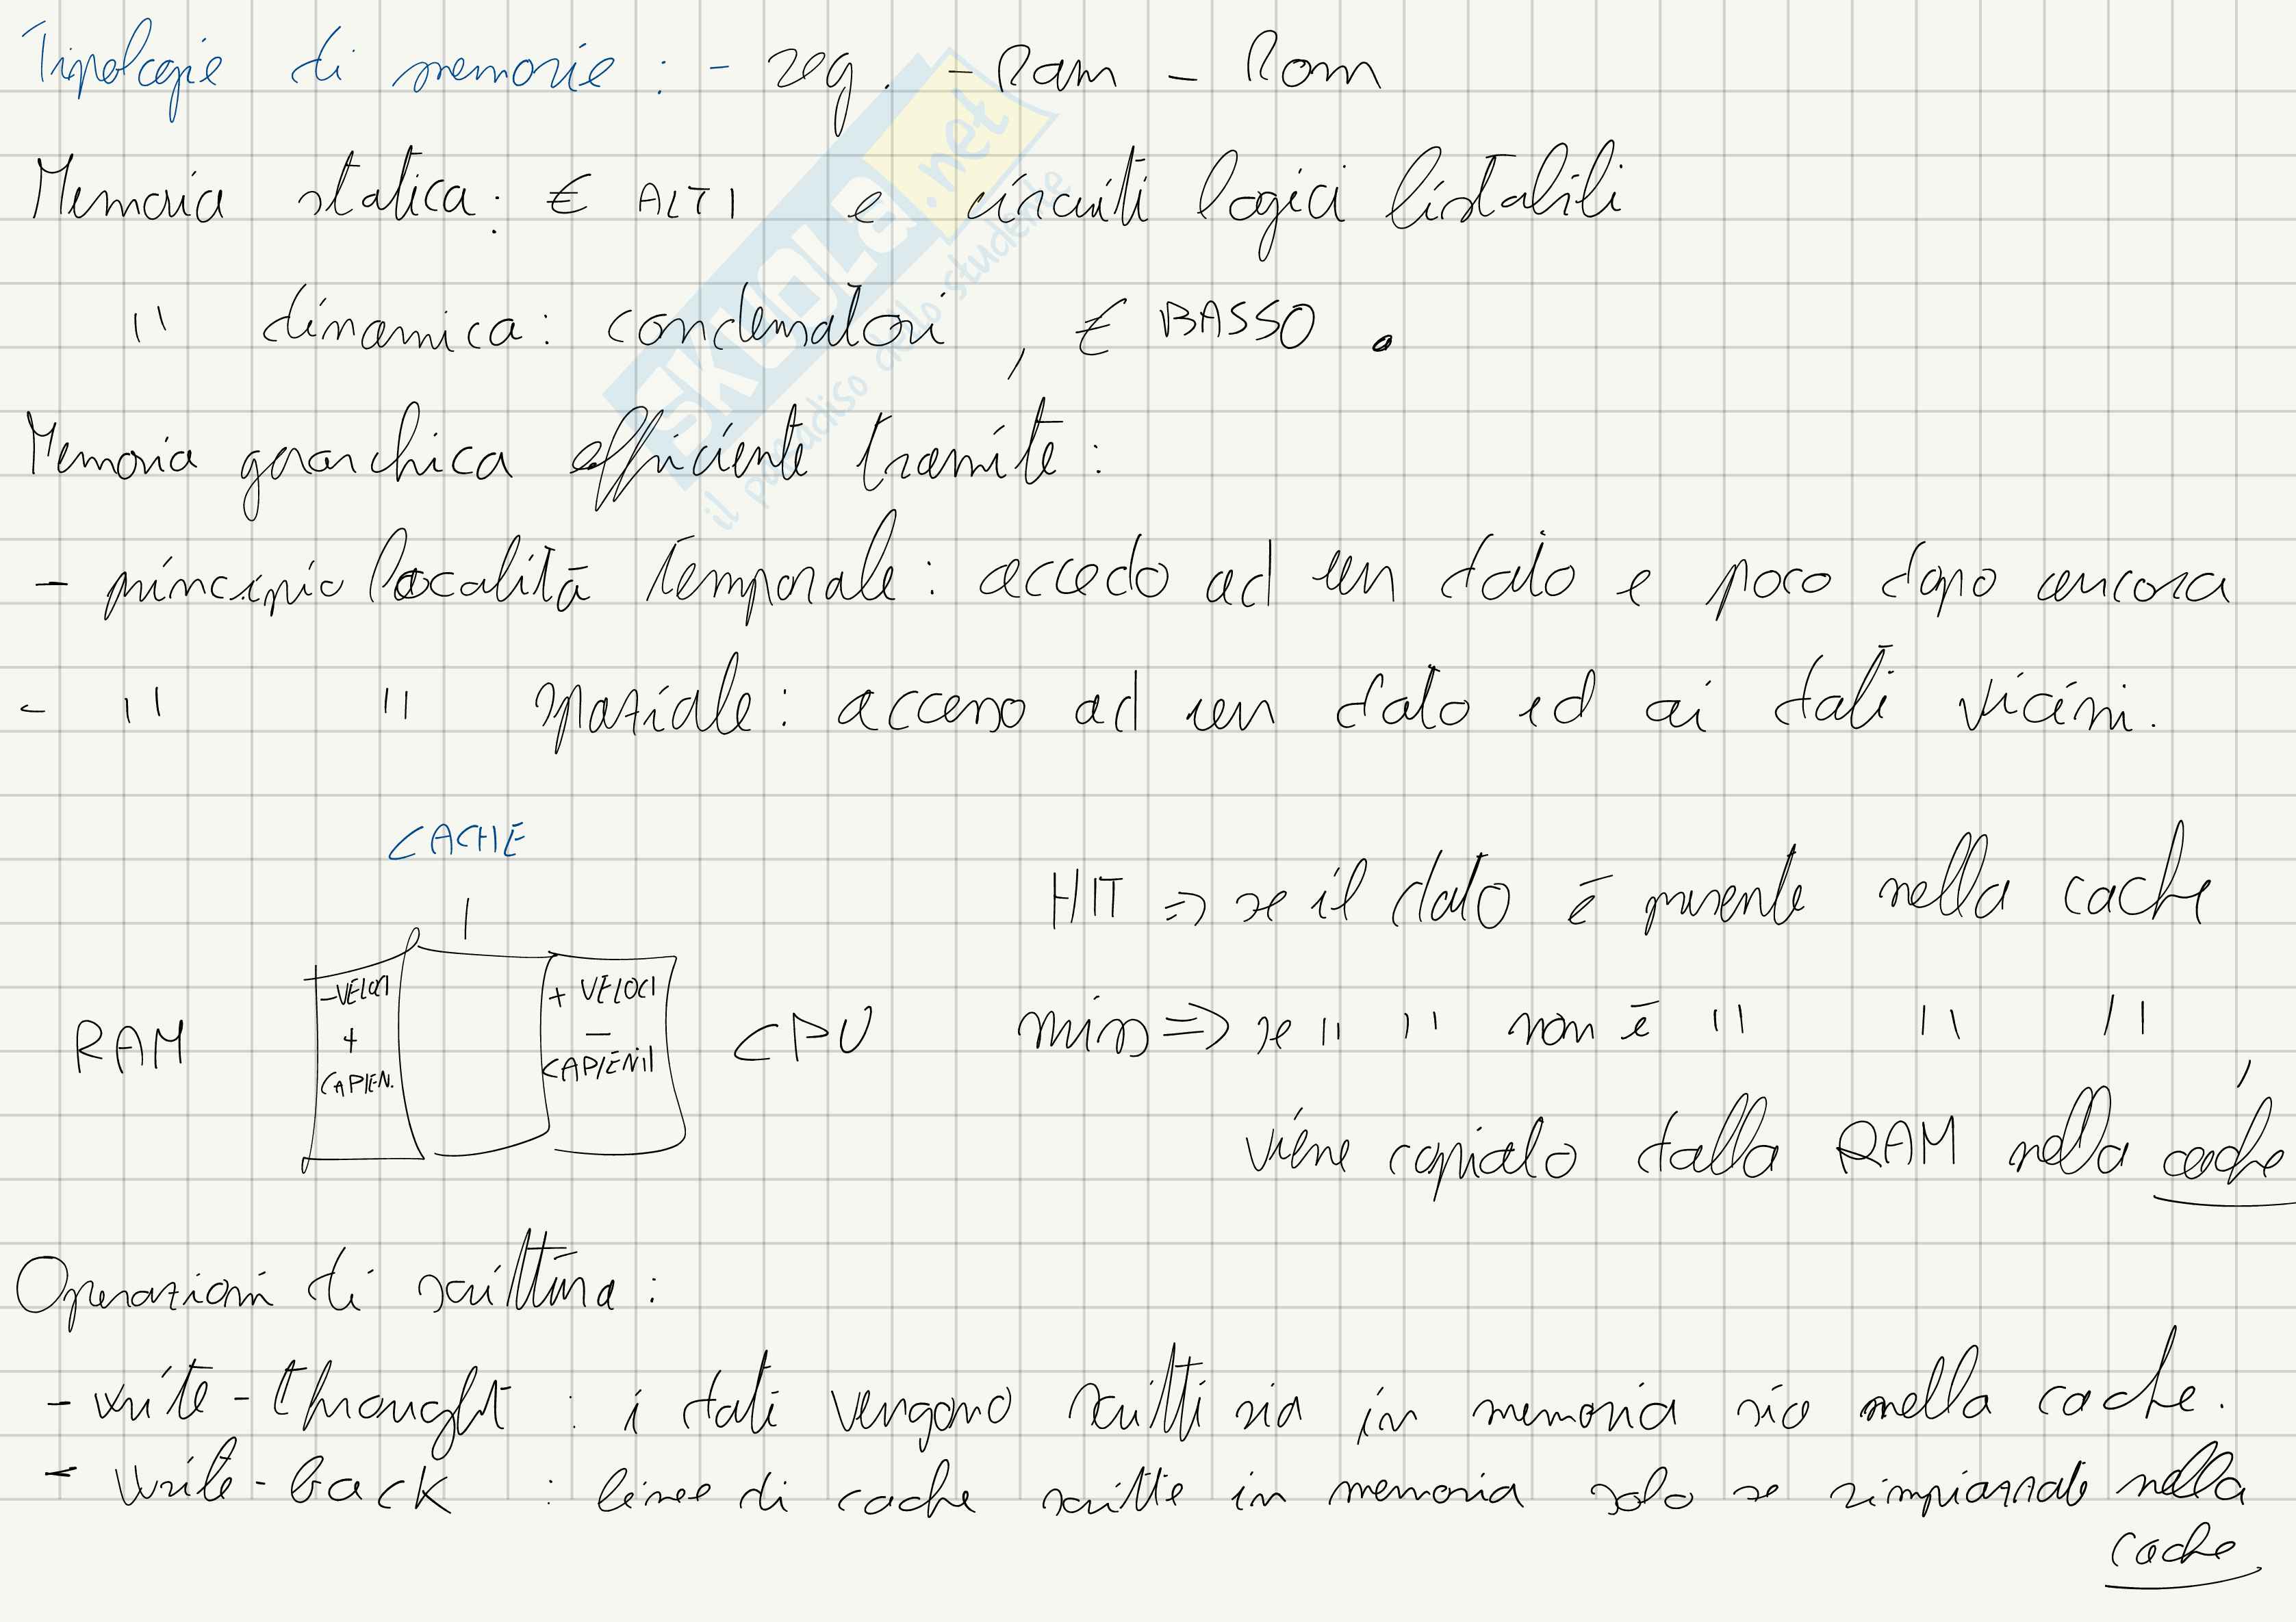 Tipologie di memorie : - reg. - Ram - Rom
Memoria statica : € ALTI e circuiti logici bistabili
" dinamica : condensatori , € BASSO .
Memoria gerarchica efficiente tramite :
- principio località temporale : accedo ad un dato e poco dopo ancora
- " " spaziale : accesso ad un dato ed ai dati vicini.
CACHE
HIT => se il dato è presente nella cache
RAM
-VELOCI
+
CAPIEN.
+ VELOCI
-
CAPIENTI
CPU
miss => se " " non è " " " ,
viene copiato dalla RAM nella cache
Operazioni di scrittura :
- write-throught : i dati vengono scritti sia in memoria sia nella cache.
- write-back : linee di cache scritte in memoria solo se rimpiazzate nella
cache
SKUOLA.net
il paradiso dello studente